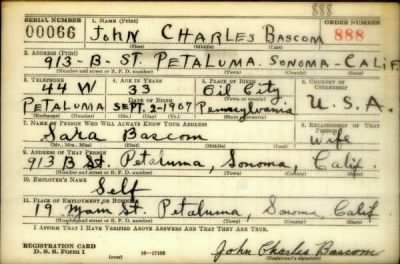 888
SERIAL NUMBER 1. NAME (Print) ORDER NUMBER
00066 JOHN CHARLES BASCOM 888
(First) (Middle) (Last)
2. ADDRESS (Print)
913-B-ST. PETALUMA. SONOMA-CALIF
(Number and street or R. F. D. number) (Town) (County) (State)
3. TELEPHONE 4. AGE IN YEARS 5. PLACE OF BIRTH 6. COUNTRY OF CITIZENSHIP
44 W 33 Oil City
DATE OF BIRTH
PETALUMA SEPT. 2-1907 Pennsylvania U.S.A.
7. NAME OF PERSON WHO WILL ALWAYS KNOW YOUR ADDRESS 8. RELATIONSHIP OF THAT PERSON
Sara Bascom Wife
(Mr., Mrs., Miss) (First) (Middle) (Last)
9. ADDRESS OF THAT PERSON
913 B St. Petaluma, Sonoma, Calif.
(Number and street or R. F. D. number) (Town) (County) (State)
10. EMPLOYER'S NAME
Self
11. PLACE OF EMPLOYMENT OR BUSINESS
19 Main St. Petaluma, Sonoma, Calif.
(Number and street or R. F. D. number) (Town) (County) (State)
I AFFIRM THAT I HAVE VERIFIED ABOVE ANSWERS AND THAT THEY ARE TRUE.
REGISTRATION CARD
D. S. S. Form 1 (over) 16-17105 John Charles Bascom
(Registrant's signature)